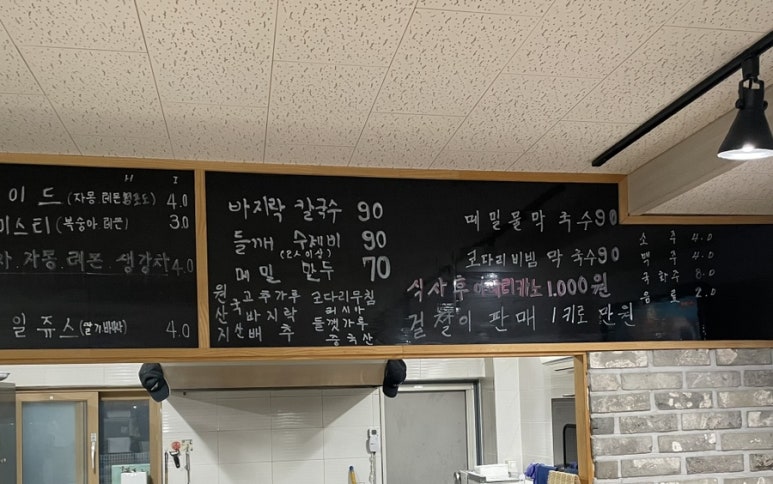 H I
이드 (자몽.레몬.청포도) 4.0
이스티 (복숭아.레몬) 3.0
자몽.레몬.생강차 4.0
일 쥬스 4.0
바지락 칼국수 90
들깨 수제비 90
(2人이상)
메밀 만두 70
원 고추가루 코다리무침
산 국 바지락 러시아
지 산 배추 들깻가루
중국산
메밀물막국수 90
코다리비빔 막국수 90
식사후 1.000원
겉절이 판매 1키로 만원
소주 4.0
맥주 4.0
국화주 8.0
음료 2.0